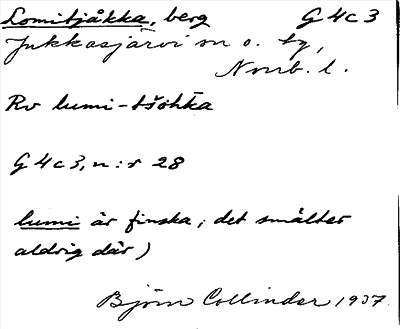 Lomitjåkka, berg G 4c 3
Jukkasjärvi sn o. tg,
Norrb. l.
Rv lumi-tšohka
G 4c3, n:r 28
lumi är finska; det smälter
aldrig där)
Björn Collinder 1937.